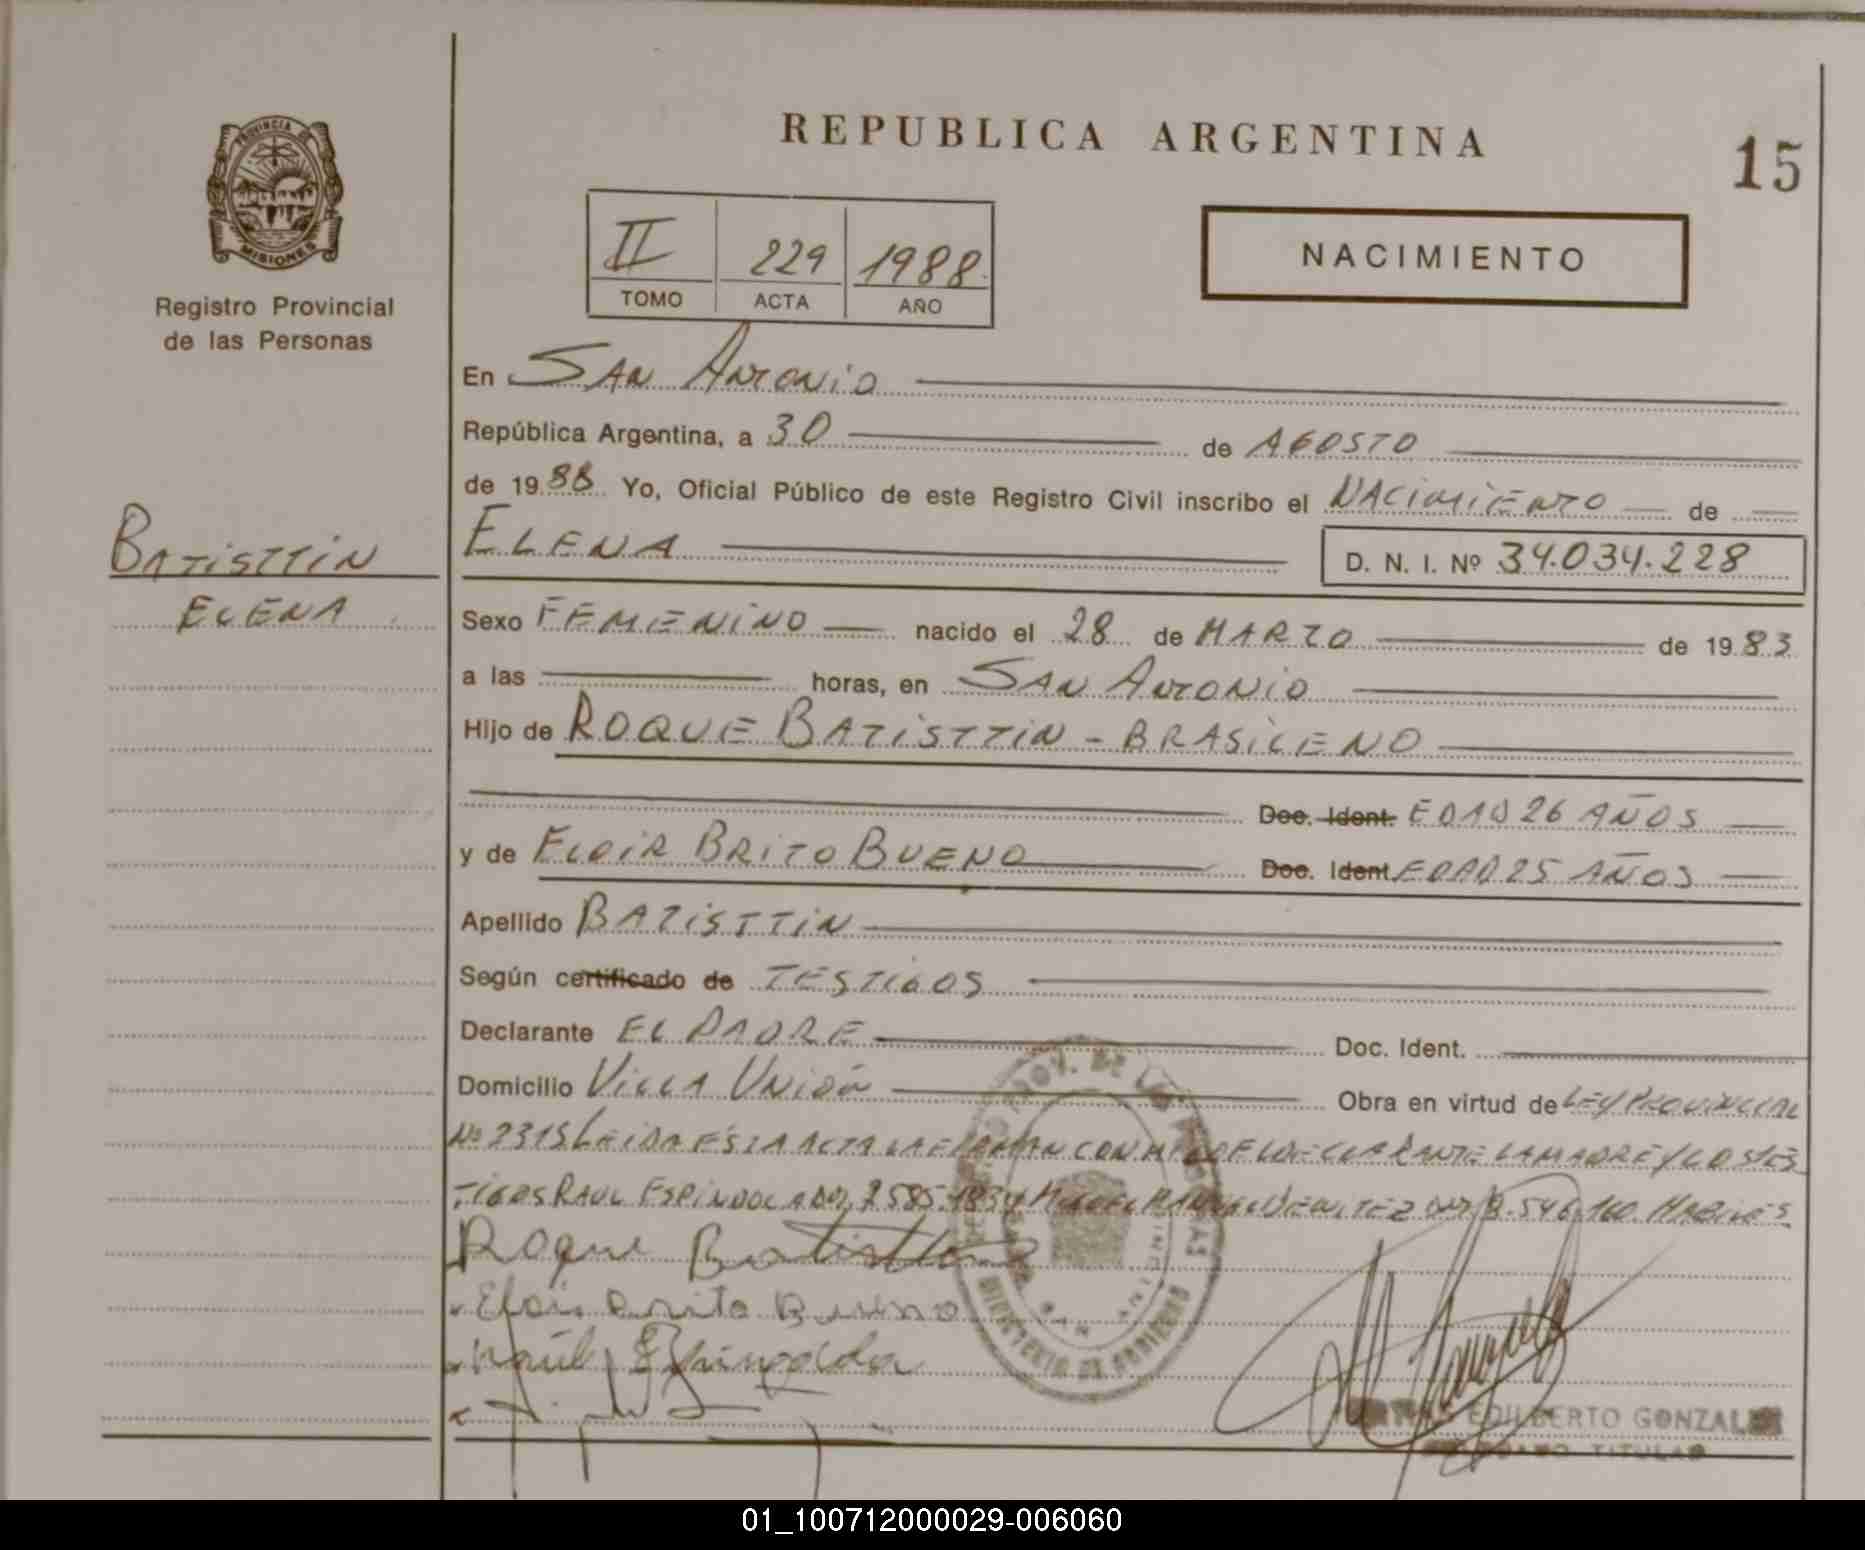 REPUBLICA ARGENTINA
15
PROVINCIA DE
MISIONES
Registro Provincial
de las Personas
II 229 1988
TOMO ACTA AÑO
NACIMIENTO
En SAN ANTONIO
República Argentina, a 30 de AGOSTO
de 19 88 Yo, Oficial Público de este Registro Civil inscribo el NACIMIENTO de
BATISTTIN
ELENA
ELENA D. N. I. Nº 34.034.228
Sexo FEMENINO nacido el 28 de MARZO de 19 83
a las horas, en SAN ANTONIO
Hijo de ROQUE BATISTTIN - BRASILENO
Doc. Ident. EDAD 26 AÑOS
y de ELOIR BRITO BUENO Doc. Ident. EDAD 25 AÑOS
Apellido BATISTTIN
Según certificado de TESTIGOS
Declarante EL PADRE Doc. Ident.
Domicilio VILLA UNIÓN Obra en virtud de LEY PROVINCIAL
Nº 2315 LEIDA ESTA ACTA LA FIRMAN CON EL DECLARANTE LA MADRE Y LOS TES
TIGOS RAUL ESPINDOLA 7.585.1834 MIGUEL BENITEZ 8.546.160.
Roque Batisttin
Eloir Brito Bueno
Raúl Espindola
PROV. DE LAS PERSONAS
SAN ANTONIO
EDILBERTO GONZALEZ
TITULAR
01_100712000029-006060